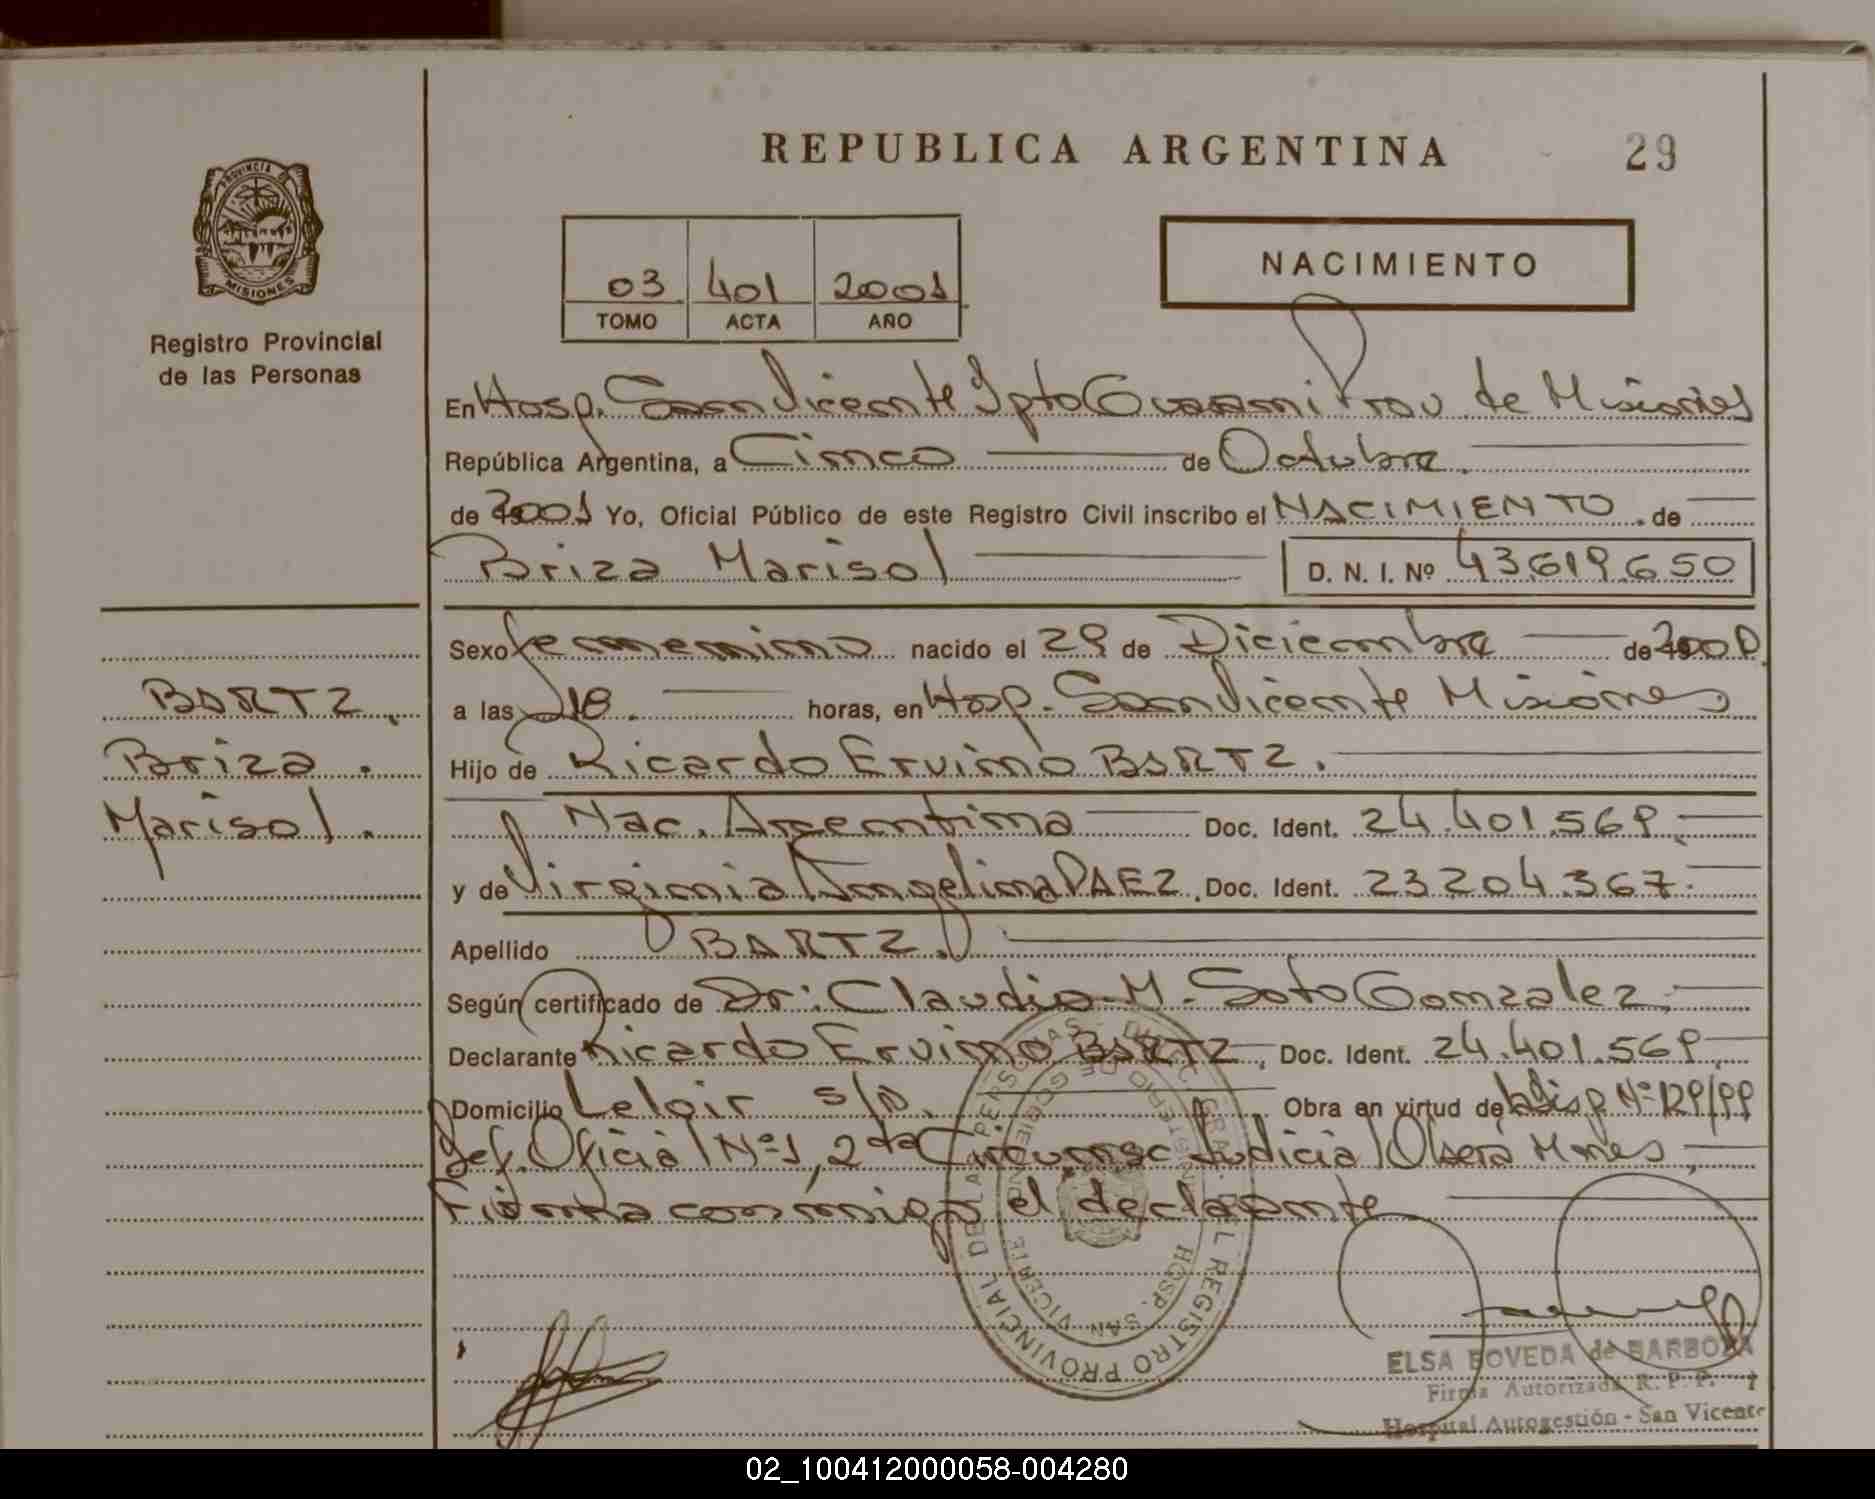 REPUBLICA ARGENTINA
29
PROVINCIA DE
MISIONES
Registro Provincial
de las Personas
03 401 2001
TOMO ACTA AÑO
NACIMIENTO
En Hosp. San Vicente Dpto Guarani Prov de Misiones
República Argentina, a Cinco de Octubre.
de 2001 Yo, Oficial Público de este Registro Civil inscribo el NACIMIENTO de
Briza Marisol D. N. I. Nº 43.619.650
Sexo femenino nacido el 29 de Diciembre de 2000
a las 18. horas, en Hosp. San Vicente Misiones
BARTZ,
Briza.
Marisol.
Hijo de Ricardo Ervino BARTZ.
Nac. Argentina Doc. Ident. 24.401.569.
y de Virginia Angelina PAEZ. Doc. Ident. 23.204.367.
Apellido BARTZ.
Según certificado de Dr: Claudio M. Soto Gonzalez.
Declarante Ricardo Ervino BARTZ, Doc. Ident. 24.401.569.
Domicilio Leloir s/n. Obra en virtud de Disp Nº 129/99
Def. Oficial Nº 1, 2da Circunsc Judicial Obera Mnes,
Firma conmigo el declarante
REGISTRO PROVINCIAL DE LAS PERSONAS
HOSP. SAN VICENTE
ELSA BOVEDA de BARBOZA
Firma Autorizada R. P. P.
Hospital Autogestión - San Vicente
02_100412000058-004280